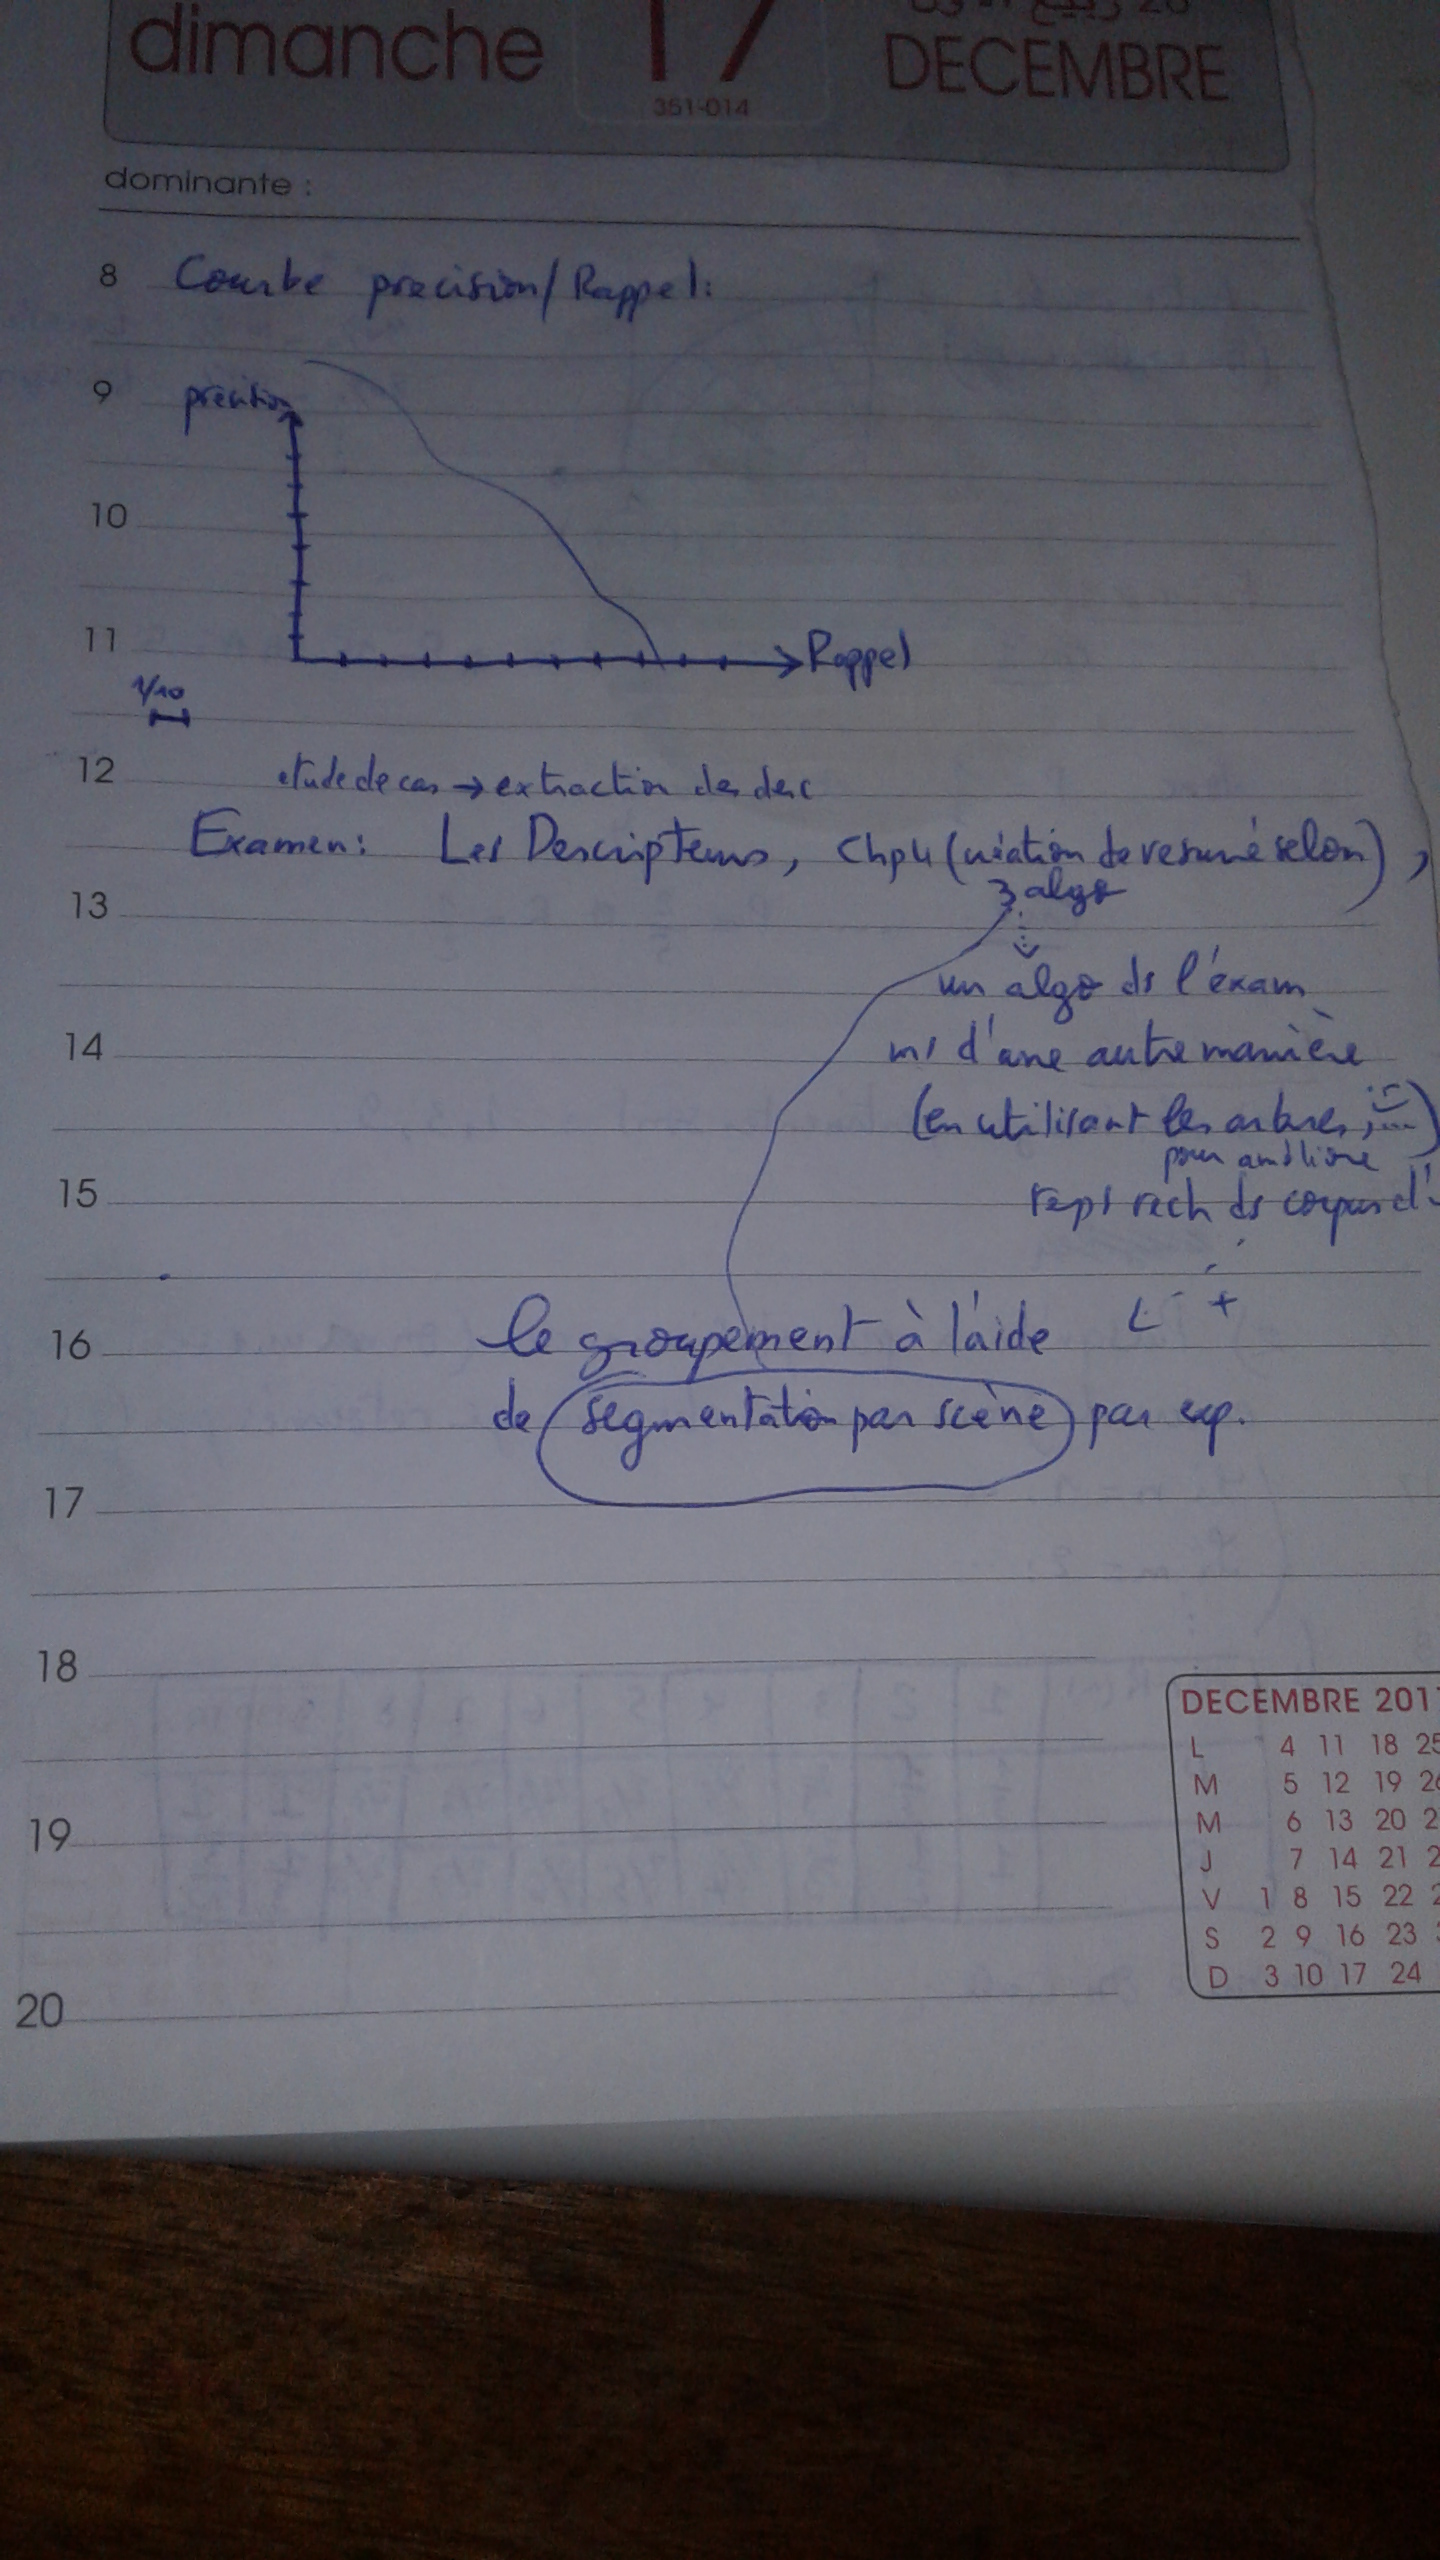 dimanche 17 DECEMBRE
351-014
dominante :
8 Courbe precision/Rappel:
9 précision
10
11 Rappel
1/10
12 etude de cas → extraction des desc
Examen: Les Descripteurs, Chp4 (création de resumé selon),
13 3 algo
un algo ds l'éxam
14 m/ d'une autre manière
(en utilisant les arbres, ...)
pour améliore
15 rech ds corpus d'
16 le groupement à l'aide
- +
de segmentation par scène par exp.
17
18
19
20
DECEMBRE 201
L 4 11 18 25
M 5 12 19 26
M 6 13 20 2
J 7 14 21 2
V 1 8 15 22 2
S 2 9 16 23
D 3 10 17 24